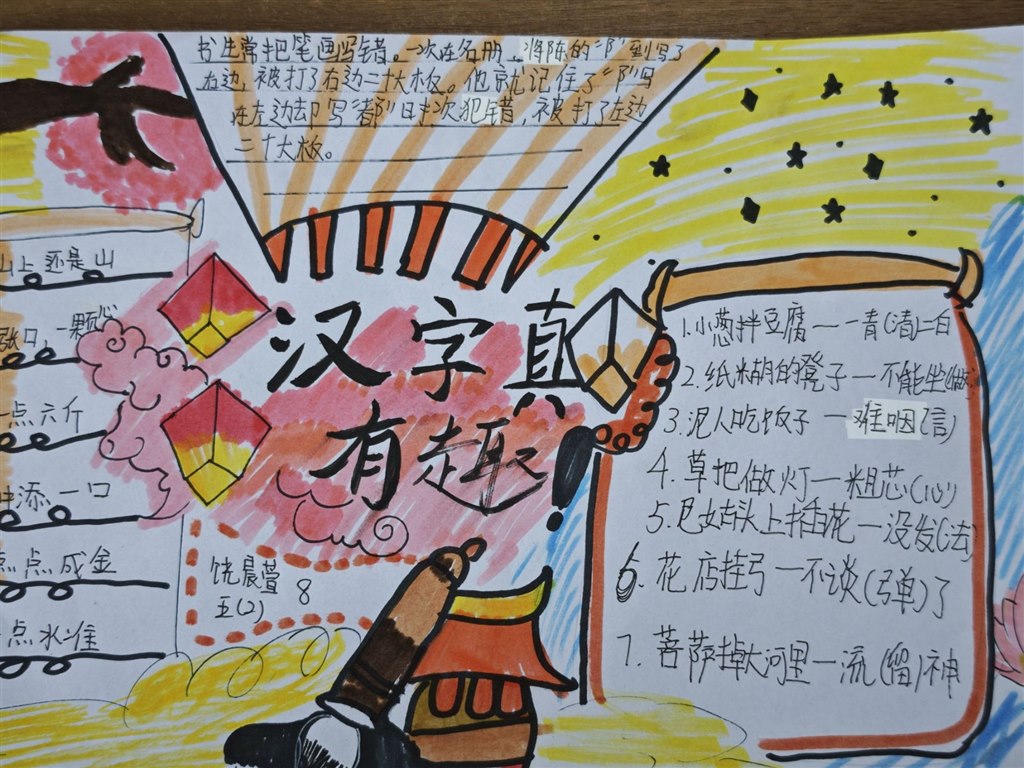 书生常把笔画写错。一次在名册，将陈的“阝”到写了
右边，被打了右边二十大板。他就记住了“阝”写
在左边却写“都”时次犯错，被打了左边
二十大板。
山上还是山
张口，一颗心
一点六斤
牛添一口
点点成金
一点水准
汉字真
有趣！
饶晨萱
五(2) 8
1.小葱拌豆腐——一青(清)二白
2.纸糊的凳子—不能坐(做)
3.泥人吃饭子—难咽(信)
4.草把做灯—粗芯(心)
5.尼姑头上插花—没发(法)
6.花店挂弓—不谈(弹)了
7.菩萨掉大河里—流(留)神